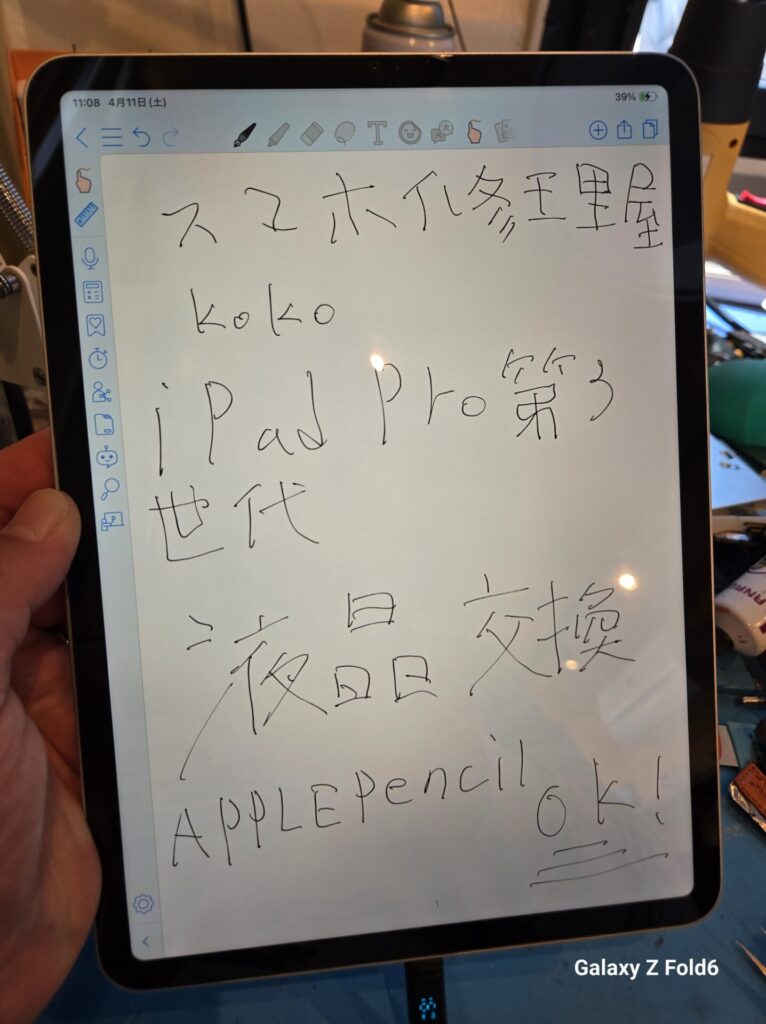 11:08 4月11日(土) 39%
スマホ修理屋
koko
iPad Pro第3
世代
液晶交換
APPLEPencil ok!
1
Galaxy Z Fold6